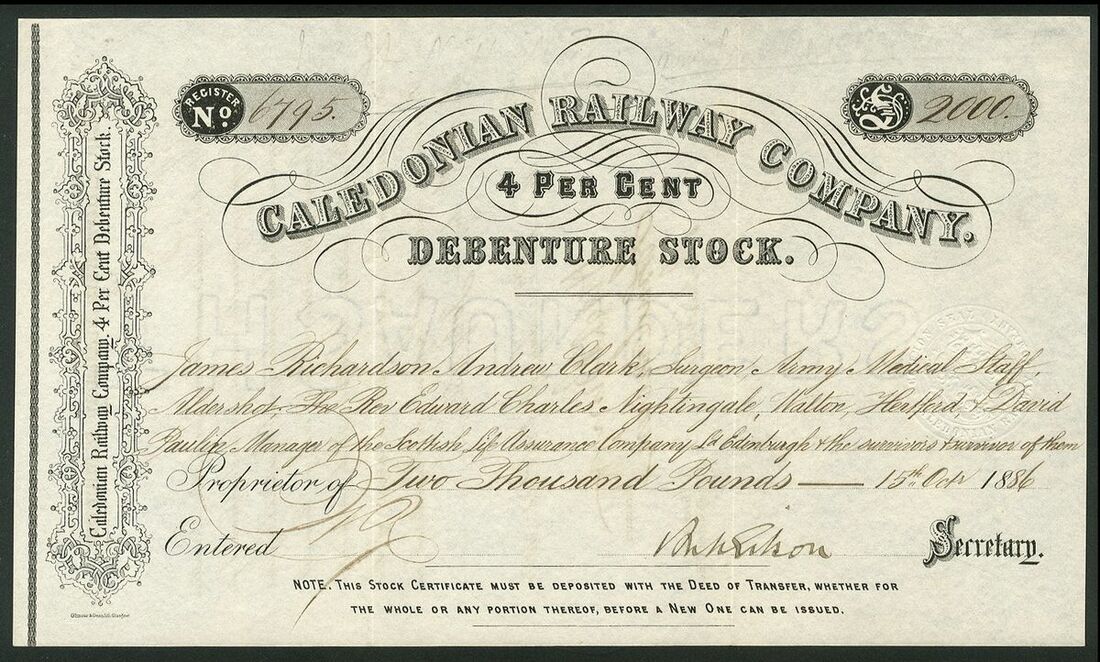 REGISTER No. 6795.
£ 2000.
CALEDONIAN RAILWAY COMPANY.
4 PER CENT
DEBENTURE STOCK.
Caledonian Railway Company. 4 Per Cent Debenture Stock.
James Richardson Andrew Clark, Surgeon, Army Medical Staff,
Aldershot. The Rev Edward Charles Nightingale, Walton, Hertford & David
Manager of the Scottish Life Assurance Company Ld Edinburgh & the survivors & survivor of them
Proprietor of Two Thousand Pounds — 15th Octr 1886
Entered
Secretary.
NOTE. THIS STOCK CERTIFICATE MUST BE DEPOSITED WITH THE DEED OF TRANSFER, WHETHER FOR
THE WHOLE OR ANY PORTION THEREOF, BEFORE A NEW ONE CAN BE ISSUED.